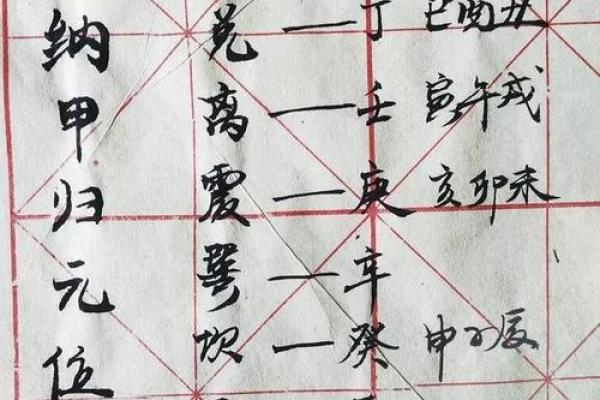 纳甲归元位
兑—丁 巳酉丑
离—壬 寅午戌
震—庚 亥卯未
巽—辛
坎—癸 申子辰